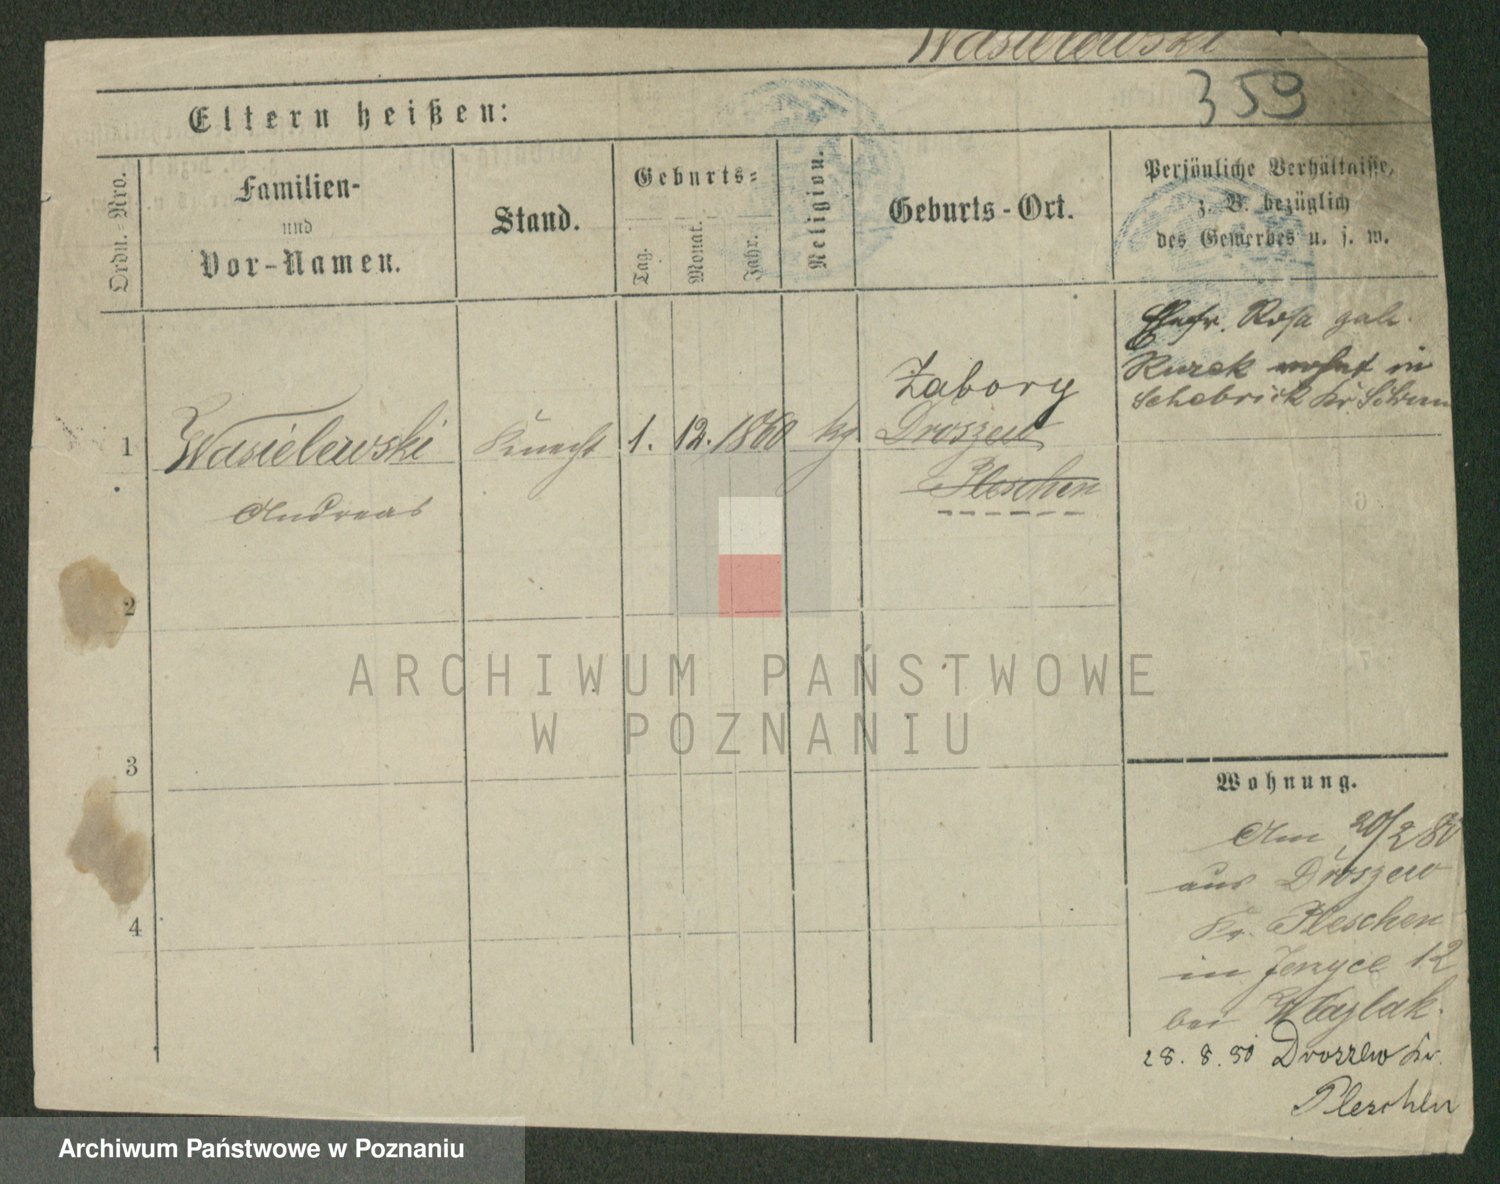 Wasielewski
359
Eltern heißen:
Ordn.-Nro.
Familien-
und
Vor-Namen.
Stand.
Geburts-
Tag.
Monat.
Jahr.
Religion.
Geburts-Ort.
Persönliche Verhältnisse,
z. B. bezüglich
des Gewerbes u. s. w.
Ehefr. Rosa geb.
Kurek wohnt in
Kr. Schrim
Zabory
1 Wasielewski Knecht 1. 12. 1860 kg Droszew
Pleschen
Andreas
2
3
4
ARCHIWUM PAŃSTWOWE
W POZNANIU
Wohnung.
Am 20/2 80
aus Droszew
Kr. Pleschen
in 12
bei
28. 8. 80 Droszew Kr.
Pleschen
Archiwum Państwowe w Poznaniu